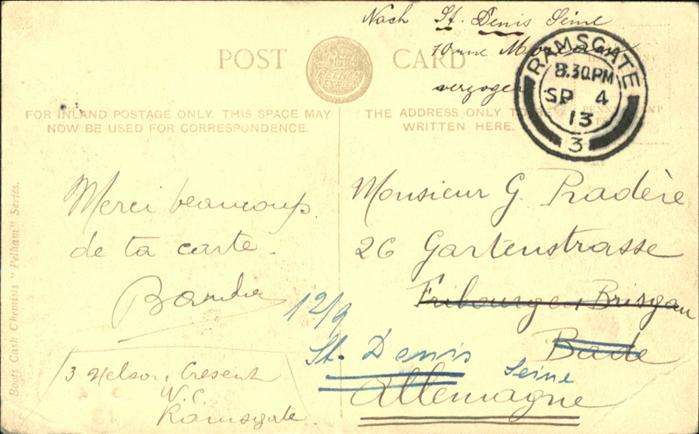 Nach St. Denis Seine
70 rue
verzogen
POST CARD
RAMSGATE
8.30 PM
SP 4
13
3
FOR INLAND POSTAGE ONLY, THIS SPACE MAY
NOW BE USED FOR CORRESPONDENCE.
THE ADDRESS ONLY TO
WRITTEN HERE.
Merci beaucoup
de ta carte.
3 Nelson Cresent
W.C.
Ramsgate.
Monsieur G. Pradère
26 Gartenstrasse
Fribourg en Brisgau
Bade
Allemagne
12/9
St. Denis
Seine
Boots Cash Chemists "Pelham" Series.